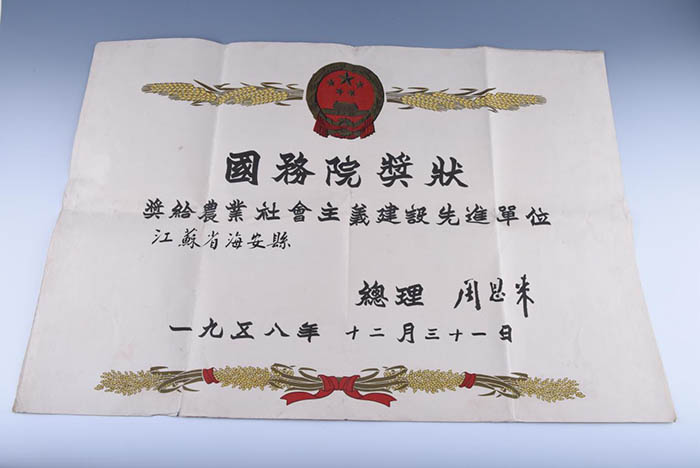 國務院獎狀
奬給農業社會主義建設先進單位
江蘇省海安縣
總理 周恩来
一九五八年 十二月三十一日